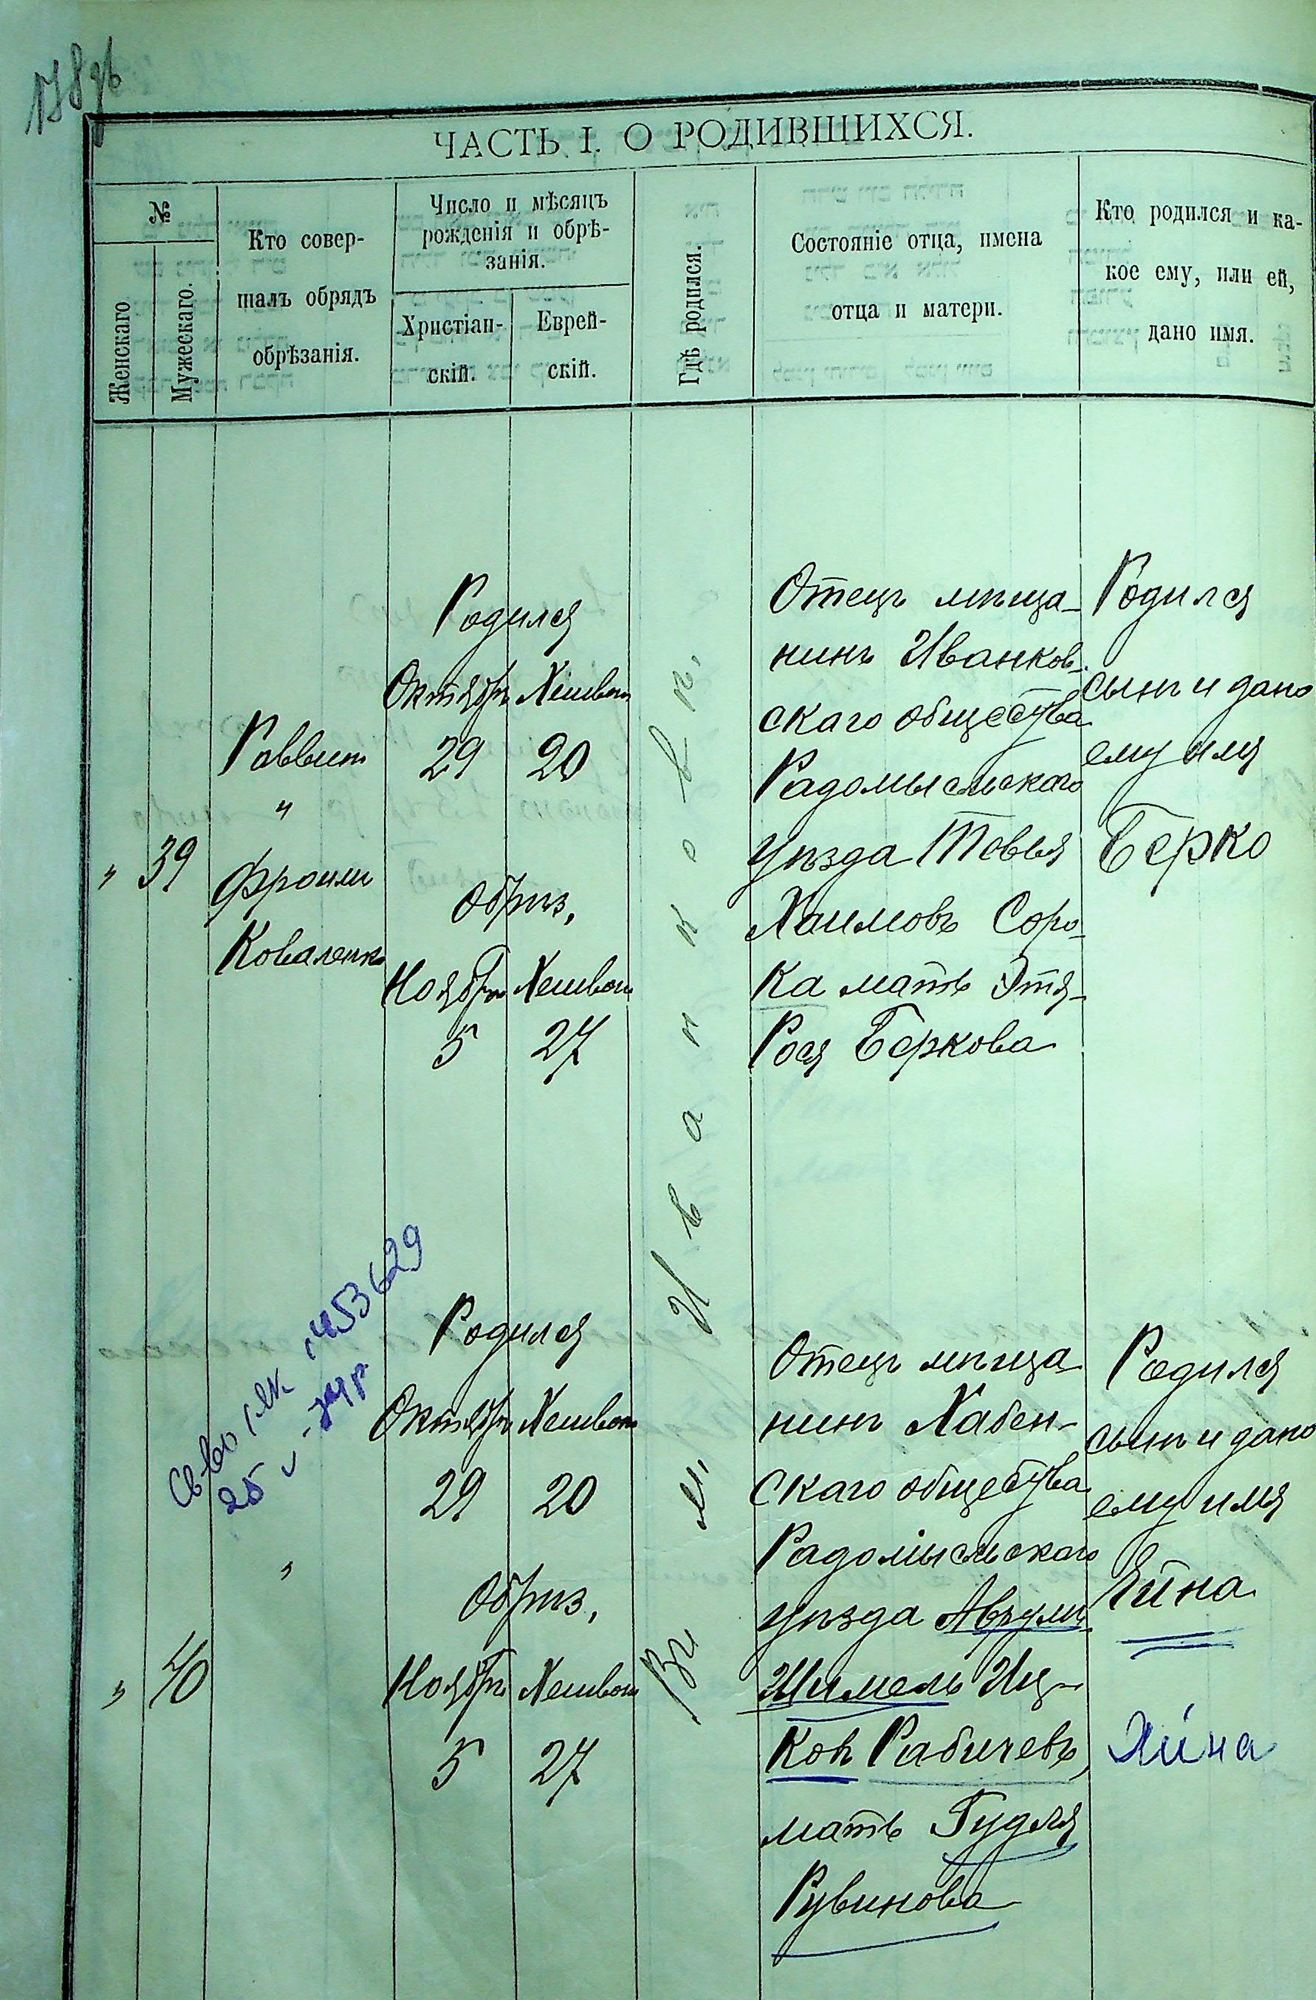 178 об
ЧАСТЬ I. О РОДИВШИХСЯ.
№
Женскаго
Мужескаго.
Кто совер-
шалъ обрядъ
обрѣзанія.
Число и мѣсяцъ
рожденія и обрѣ-
занія.
Христіан-
скій.
Еврей-
скій.
Гдѣ родился.
Состояніе отца, имена
отца и матери.
Кто родился и ка-
кое ему, или ей,
дано имя.
„
39
Раввин
и
Фроим
Коваленко
Родился
Октябрь Хешван
29 20
Обрѣз.
Ноябрь Хешван
5 27
Въ м. Иванковѣ.
Отецъ мѣща-
нинъ Иванков-
скаго общества
Радомысльскаго
уѣзда Товья
Хаимовъ Соро-
ка мать Этя-
Рося Беркова
Родился
сынъ и дано
ему имя
Берко
„
40
„
1453629
25
Родился
Октябрь Хешван
29 20
Обрѣз.
Ноябрь Хешван
5 27
Отецъ мѣща
нинъ Хабен-
скаго общества
Радомысльскаго
уѣзда Аврумъ
Шимель Иц-
ковъ Рабичевъ,
мать Гудля
Рувинова
Родился
сынъ и дано
ему имя
Хйна